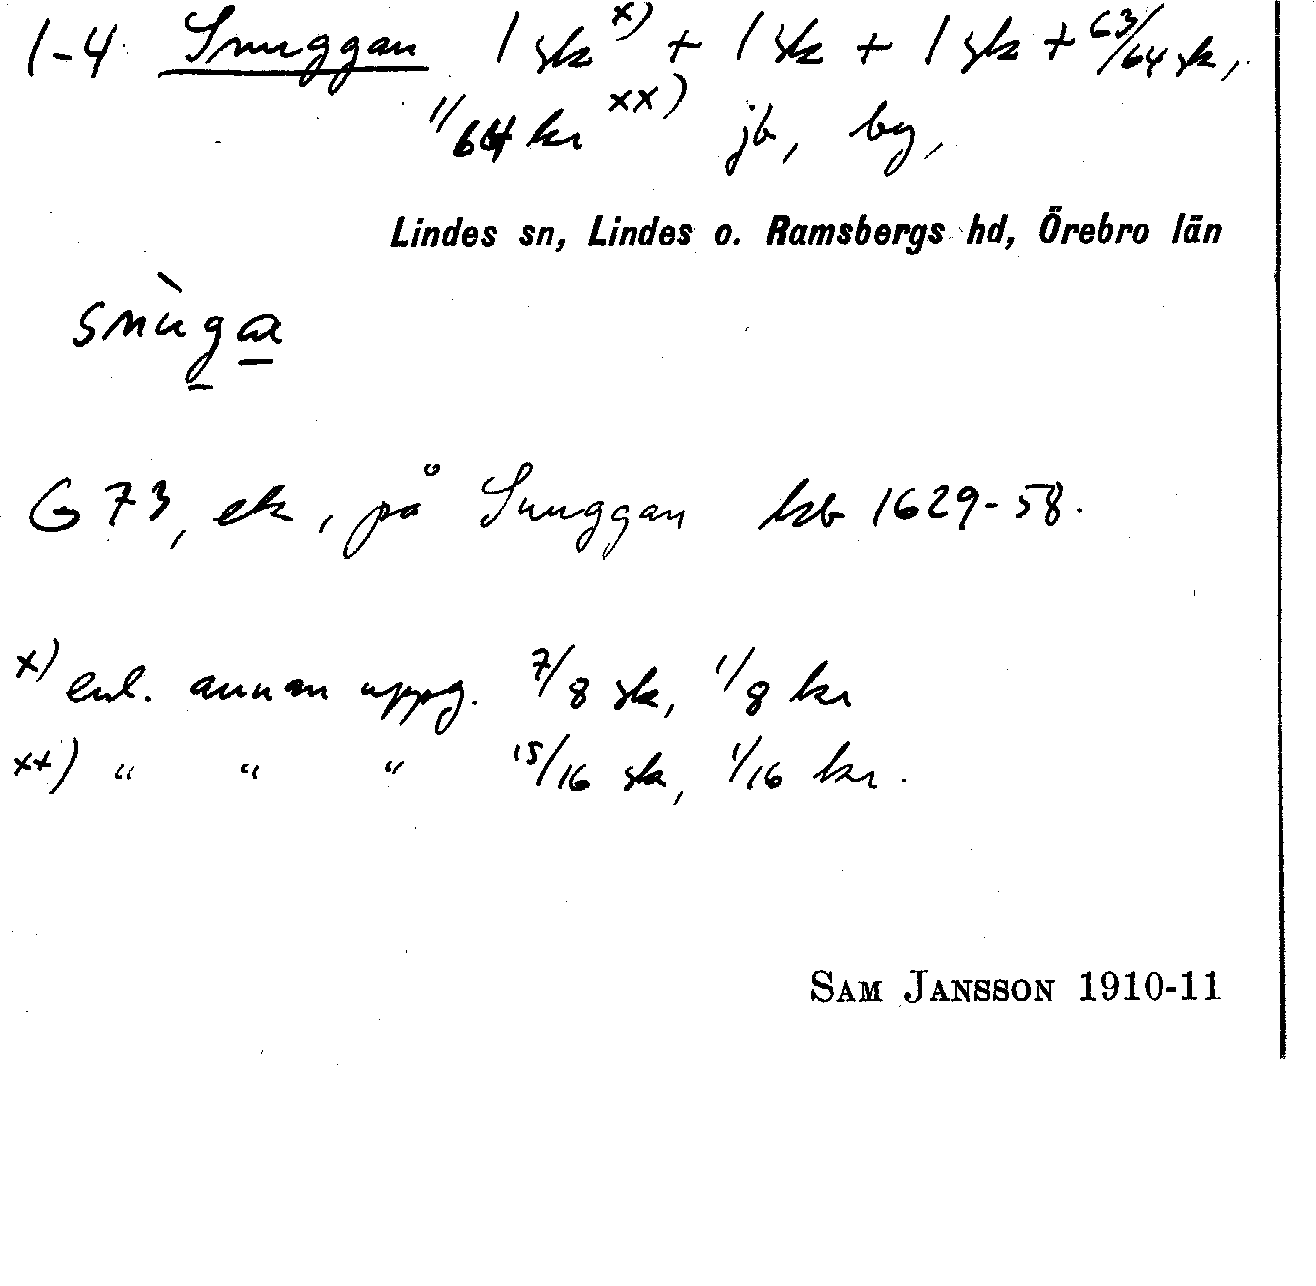 1-4 Snuggan 1 sk x) + 1 sk + 1 sk + 63/64 sk,
1/64 kr xx) jb, by,
Lindes sn, Lindes o. Ramsbergs hd, Örebro län
snùga
G 73, ek, på Snuggan kb 1629-58.
x) enl. annan uppg. 7/8 sk, 1/8 kr
xx) " " " 15/16 sk, 1/16 kr.
SAM JANSSON 1910-11